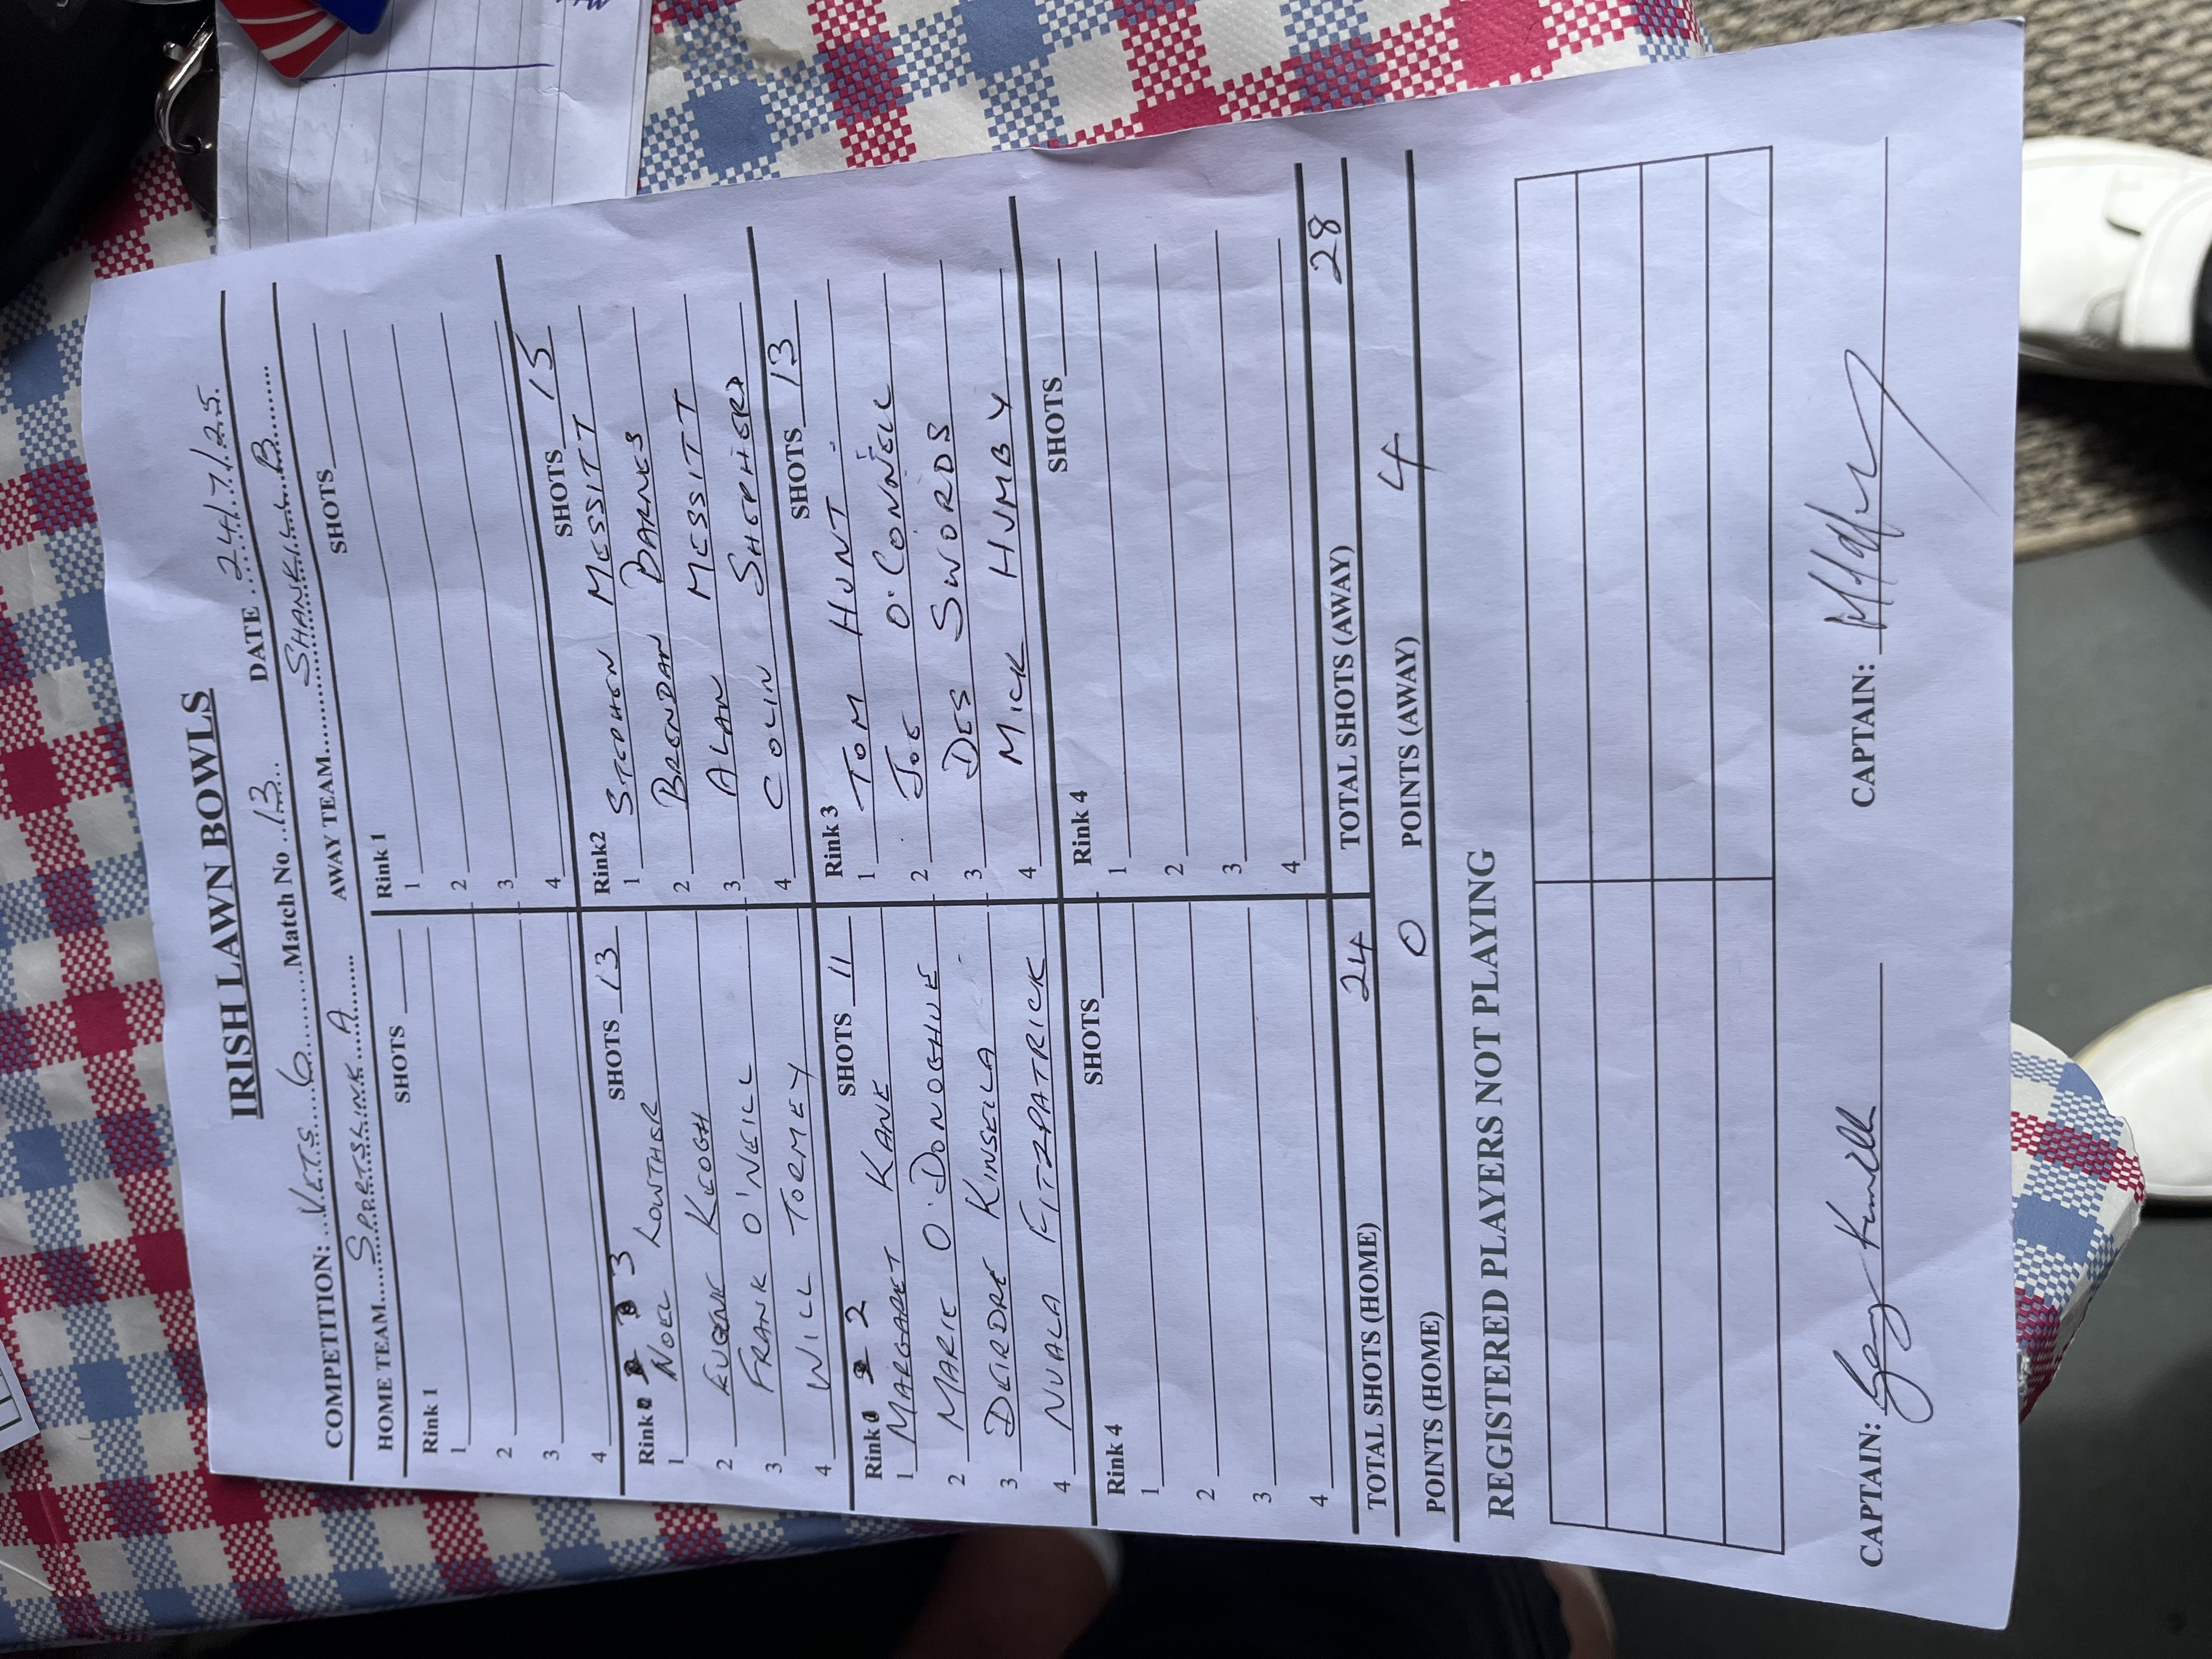 IRISH LAWN BOWLS
COMPETITION: VETS 6 Match No 13 DATE 24/7/25
HOME TEAM SPORTSLINK A AWAY TEAM SHANKILL B
SHOTS SHOTS
Rink 1 Rink 1
1 1
2 2
3 3
4 4
Rink 3 SHOTS 13 Rink2 SHOTS 15
1 NOEL LOWTHER 1 STEPHEN MESSITT
2 EUGENE KEOGH 2 BRENDAN BARNES
3 FRANK O'NEILL 3 ALAN MESSITT
4 WILL TORMEY 4 COLIN SHEPHERD
Rink 2 SHOTS 11 Rink 3 SHOTS 13
1 MARGARET KANE 1 TOM HUNT
2 MARIE O'DONOGHUE 2 JOE O'CONNELL
3 DEIRDRE KINSELLA 3 DES SWORDS
4 NUALA FITZPATRICK 4 MICK HUMBY
Rink 4 SHOTS Rink 4 SHOTS
1 1
2 2
3 3
4 4
TOTAL SHOTS (HOME) 24 TOTAL SHOTS (AWAY) 28
POINTS (HOME) 0 POINTS (AWAY) 4
REGISTERED PLAYERS NOT PLAYING
CAPTAIN: CAPTAIN: